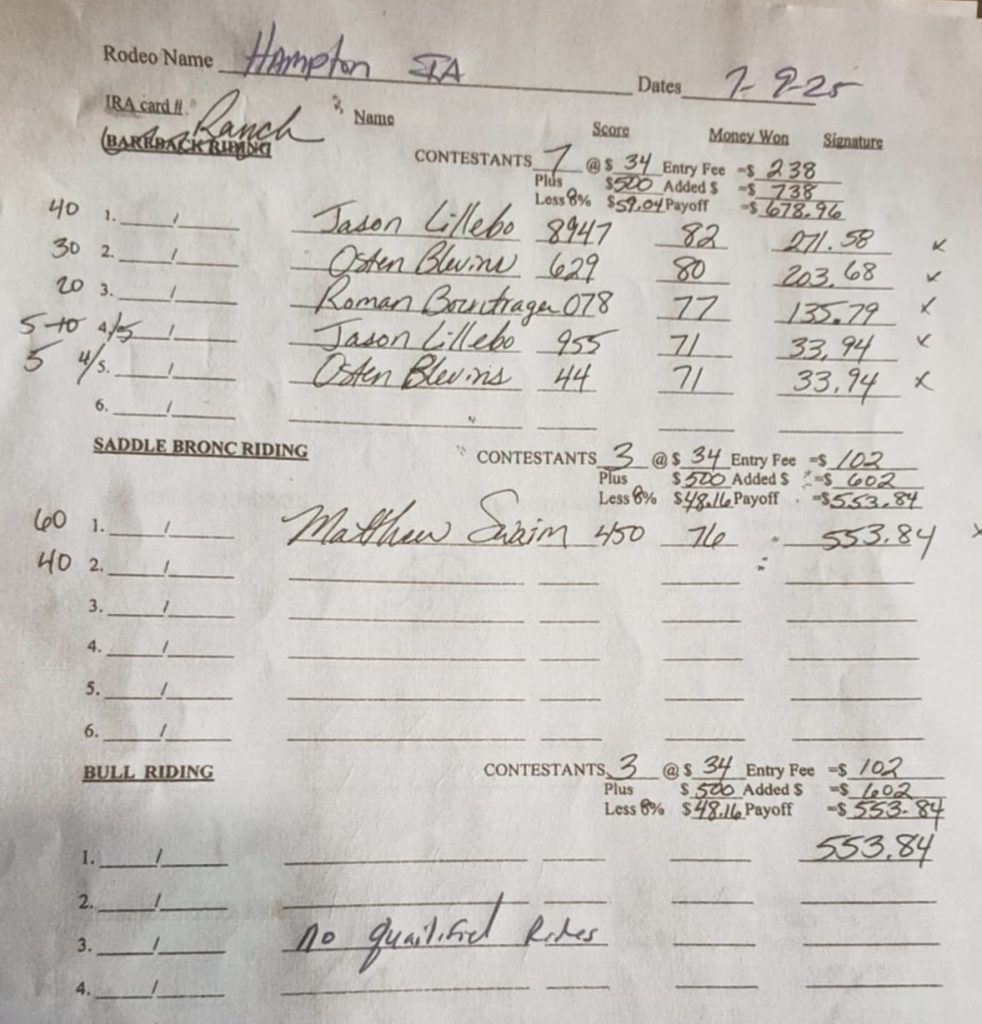 Rodeo Name Hampton IA Dates 7-9-25
IRA card # Name Score Money Won Signature
Ranch
BAREBACK RIDING CONTESTANTS 7 @ $ 34 Entry Fee =$ 238
Plus $500 Added $ =$ 738
Less 8% $59.04 Payoff =$ 678.96
40 1. / Jason Lillebo 8947 82 271.58 x
30 2. / Osten Blevins 629 80 203.68 x
20 3. / Roman Borntrager 078 77 135.79 x
5-10 4/5 / Jason Lillebo 955 71 33.94 x
5 4/5. / Osten Blevins 44 71 33.94 x
6. /
SADDLE BRONC RIDING CONTESTANTS 3 @ $ 34 Entry Fee =$ 102
Plus $500 Added $ =$ 602
Less 8% $48.16 Payoff =$553.84
60 1. / Matthew Swaim 450 76 553.84 x
40 2. /
3. /
4. /
5. /
6. /
BULL RIDING CONTESTANTS 3 @ $ 34 Entry Fee =$ 102
Plus $ 500 Added $ =$ 602
Less 8% $48.16 Payoff =$ 553.84
1. / 553.84
2. /
3. / no quailified Rides
4. /